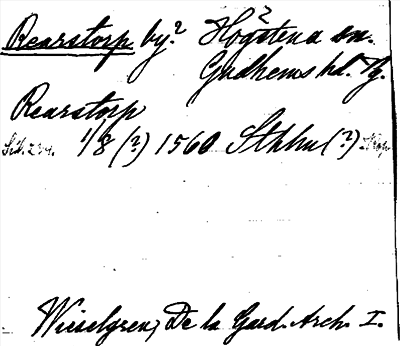 Rearstorp by? Högstena sn.
Gudhems hd. Vg.
Rearstorp
Sid. 234. 1/8 (?) 1560 Sthlm (?) Kop.
Wieselgren, De la Gard. Arch. I.